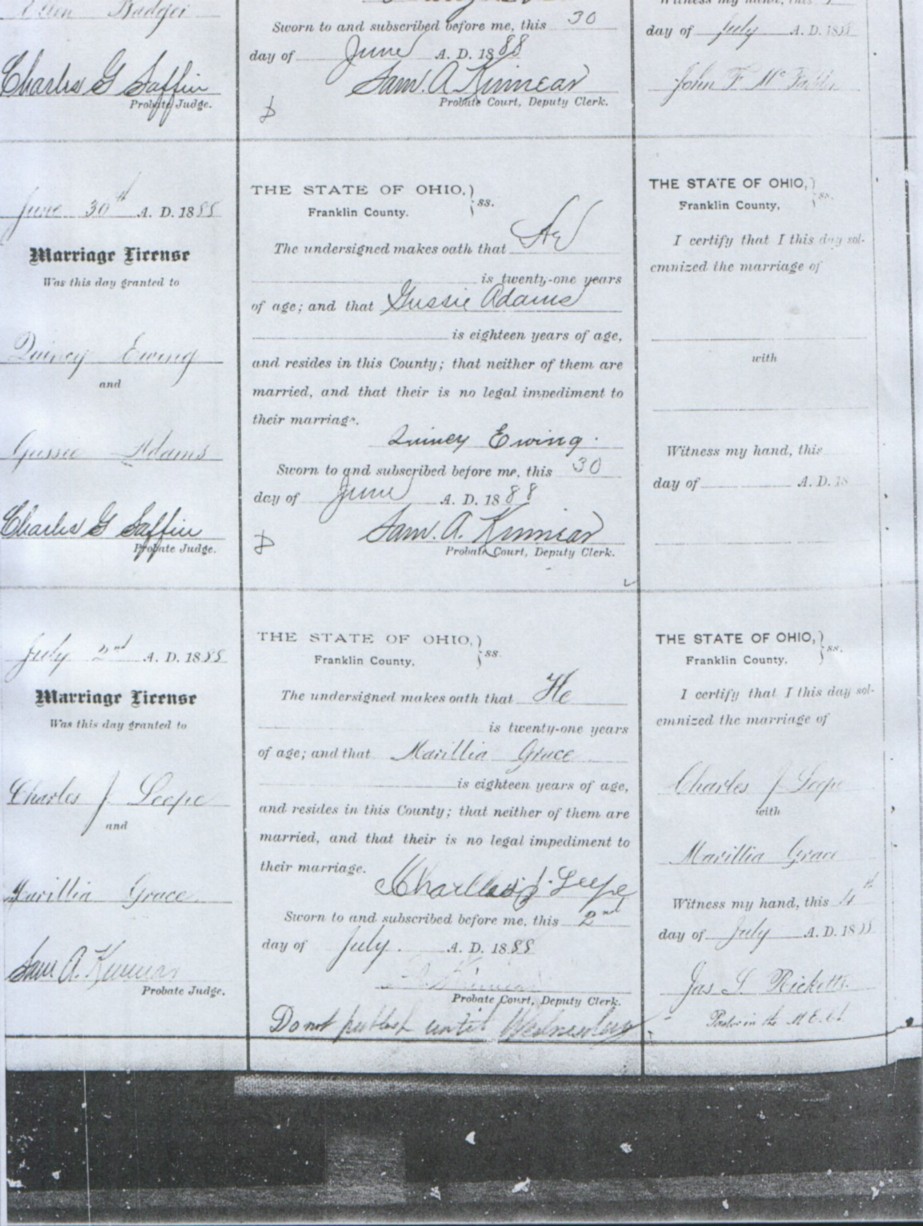 Ellen Badger
Charles G Saffin
Probate Judge.
Sworn to and subscribed before me, this 30
day of June A. D. 1888
Sam. A. Kinnear
Probate Court, Deputy Clerk.
Witness my hand, this
day of July A. D. 1888
John F. Mc
June 30th A. D. 1888
Marriage License
Was this day granted to
Quincy Ewing
and
Gussie Adams
Charles G Saffin
Probate Judge.
THE STATE OF OHIO, } ss.
Franklin County.
The undersigned makes oath that He
is twenty-one years
of age; and that Gussie Adams
is eighteen years of age,
and resides in this County; that neither of them are
married, and that their is no legal impediment to
their marriage.
Quincy Ewing.
Sworn to and subscribed before me, this 30
day of June A. D. 1888
Sam. A. Kinnear
Probate Court, Deputy Clerk.
THE STATE OF OHIO, } ss.
Franklin County.
I certify that I this day sol-
emnized the marriage of
with
Witness my hand, this
day of A. D. 18
July 2nd A. D. 1888
Marriage License
Was this day granted to
Charles J Leepe
and
Marillia Grace
Sam A. Kinnear
Probate Judge.
THE STATE OF OHIO, } ss.
Franklin County.
The undersigned makes oath that He
is twenty-one years
of age; and that Marillia Grace
is eighteen years of age,
and resides in this County; that neither of them are
married, and that their is no legal impediment to
their marriage.
Charles J. Leepe
Sworn to and subscribed before me, this 2nd
day of July. A. D. 1888
Probate Court, Deputy Clerk.
Do not publish until Wednesday
THE STATE OF OHIO, } ss.
Franklin County.
I certify that I this day sol-
emnized the marriage of
Charles J Leepe
with
Marillia Grace
Witness my hand, this 4th
day of July A. D. 1888
Jas S. Ricketts
Pastor in the M. E. Ch